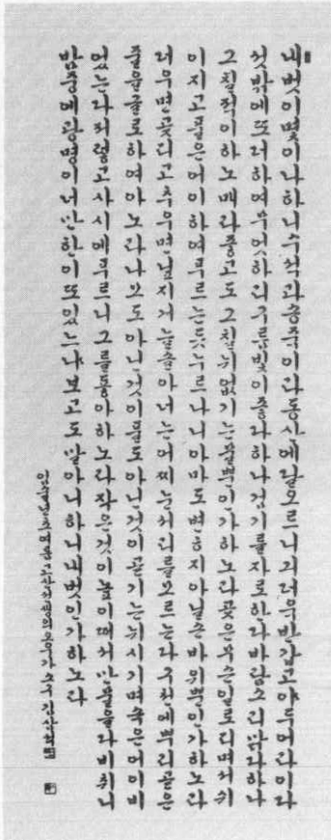 내 벗이 몇이나 하니 수석과 송죽이라 동산에 달오르니 긔 더욱 반갑고야 두어라 이 다
섯 밖에 또 더하여 무엇하리 구름빛이 좋다하나 검기를 자로한다 바람소리 맑다하나
그칠적이 하노매라 좋고도 그칠뉘 없기는 물뿐인가 하노라 꽃은 무슨 일로 퓌며서 쉬
이 지고 풀은 어이하여 푸르는듯 누르나니 아마도 변치 아닐손 바위뿐인가 하노라
더우면 꽃피고 추우면 닢지거늘 솔아 너는 어찌 눈서리를 모르는다 구천에 뿌리 곧은
줄을 글로하여 아노라 나모도 아닌것이 풀도 아닌것이 곧기는 뉘시기며 속은 어이 비
었는다 저렇고 사시에 푸르니 그를 좋아하노라 작은것이 높이 떠서 만물을 다 비취니
밤중에 광명이 너만한이 또 있느냐 보고도 말아니하니 내 벗인가 하노라